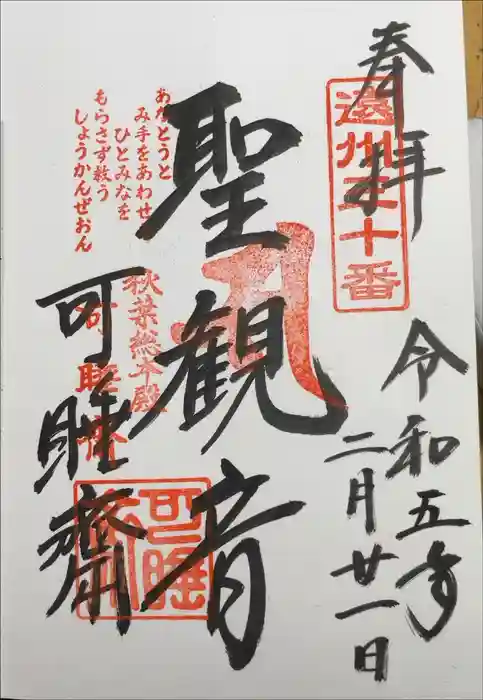 奉拝
遠州三十番
令和五年
二月廿一日
聖観音
あなとうと
み手をあわせ
ひとみなを
もらさず救う
しょうかんぜおん
秋葉総本殿
可睡斎
可睡齋
可睡